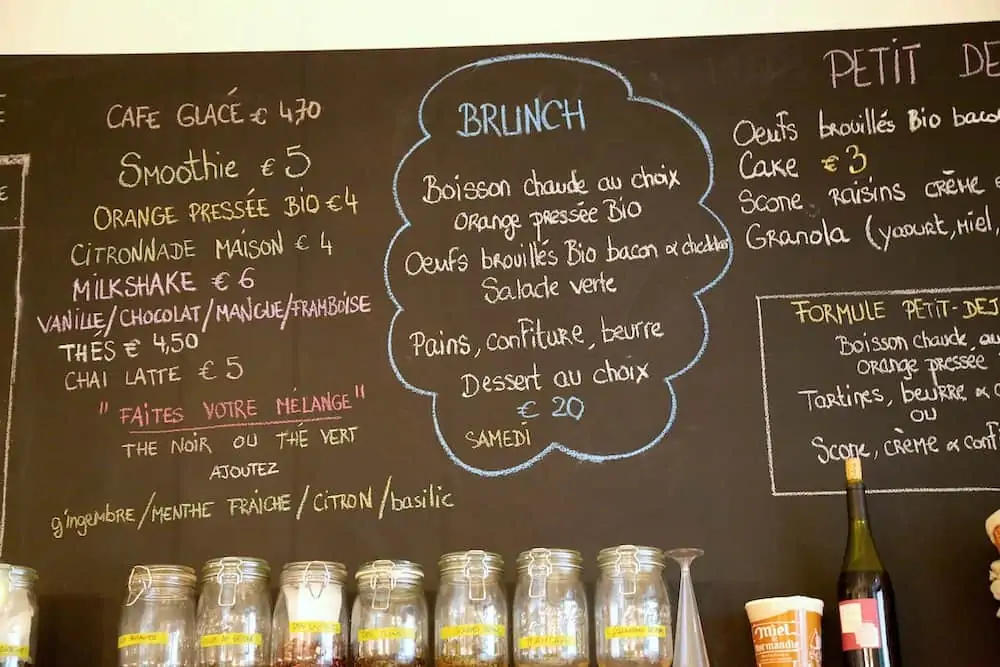 CAFE GLACÉ € 4,70
Smoothie € 5
ORANGE PRESSÉE BIO € 4
CITRONNADE MAISON € 4
MILKSHAKE € 6
VANILLE/CHOCOLAT/MANGUE/FRAMBOISE
THÉS € 4,50
CHAI LATTE € 5
"FAITES VOTRE MÉLANGE"
THE NOIR OU THÉ VERT
AJOUTEZ
gingembre/MENTHE FRAICHE/CITRON/basilic
BRUNCH
Boisson chaude au choix
Orange pressée Bio
Oeufs brouillés Bio bacon & cheddar
Salade verte
Pains, confiture, beurre
Dessert au choix
€ 20
SAMEDI
PETIT DE
Oeufs brouillés Bio baco
Cake € 3
Scone Raisins crème
Granola (yaourt, Miel,
FORMULE PETIT-DEJ
Boisson chaude, au
Orange pressée
Tartines, beurre &
OU
Scone, crème & confi
Miel
Normandie